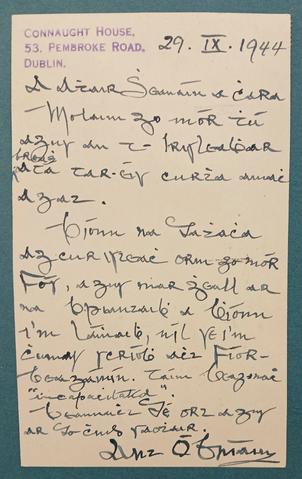 CONNAUGHT HOUSE,
53, PEMBROKE ROAD,
DUBLIN.
29. IX. 1944
A Aṫair Seanáin a ċara
Molaim go mór tú
agus an t-irisleabar
breaġ
atá tar-éis curṫa amaċ
agat.
Bíonn na
ag cur isteaċ orm go mór
fós, agus mar ġeall ar
na a ḃíonn
i'm láṁaiḃ, níl sé i'm
ċumas scríoḃ aċ fíor-
ḃeagáinín. Táim beagnaċ
"incapacitated".
Beannaċt Dé ort agus
ar do ċuid saoṫair.
Ó Briain